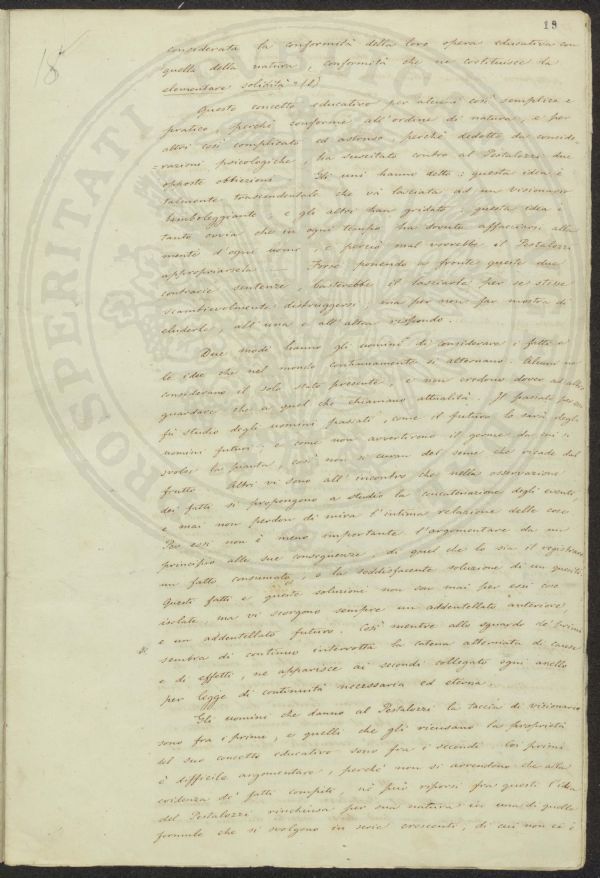 19
15
considerata la conformità della loro opera educativa con
quella della natura, conformità che ne costituisce la
elementare solidità "(1)
Questo concetto educativo per alcuni così semplice e
pratico, perchè conforme all'ordine di natura, e per
altri così complicato ed astruso, perchè dedotto da conside-
-razioni psicologiche, ha suscitato contro al Pestalozzi due
opposte obbiezioni. Gli uni hanno detto: questa idea è
talmente trascendentale che va lasciata ad un visionario
bamboleggiante e gli altri han gridato, questa idea è
tanto ovvia che in ogni tempo ha dovuto affacciarsi alla
mente d'ogni uomo, e perciò mal vorrebbe il Pestalozzi
appropriarsela — Forse ponendo a fronte queste due
contrarie sentenze, basterebbe il lasciarle per se stesse
scambievolmente distruggersi, ma per non far mostra di
eluderle, all'una e all'altra rispondo.
Due modi hanno gli uomini di considerare i fatti e
le idee che nel mondo continuamente si alternano. Alcuni ne
considerano il solo stato presente, e non credono dover ad altro
guardare che a quel che chiamano attualità. Il passato per essi
fu studio degli uomini passati, come il futuro lo sarà degli
uomini futuri: e come non avvertirono il germe da cui si
svolse la pianta, così non si curan del seme che ricade dal
frutto. Altri vi sono all'incontro che nella osservazione
dei fatti si propongono a studio la concatenazione degli eventi,
e mai non perdon di mira l'intima relazione delle cose
Per essi non è meno importante l'argomentare da un
principio alle sue conseguenze, di quel che lo sia il registrare
un fatto consumato, o la soddisfacente soluzione di un quesito
Questi fatti e queste soluzioni non son mai per essi cose
isolate, ma vi scorgono sempre un addentellato anteriore,
e un addentellato futuro. Così mentre allo sguardo de' primi
sembra di continuo interrotta la catena alternata di cause
e di effetti, ne apparisce ai secondi collegato ogni anello
per legge di continuità necessaria ed eterna.
Gli uomini che danno al Pestalozzi la taccia di visionario
sono fra i primi, e quelli che gli ricusano la proprietà
del suo concetto educativo sono fra i secondi. Coi primi
è difficile argomentare, perchè non si arrendono che alla
evidenza di fatti compiti, nè può riporsi fra questi l'idea
del Pestalozzi rinchiusa per sua natura in una di quelle
formule che si svolgono in serie crescenti, di cui non ci è